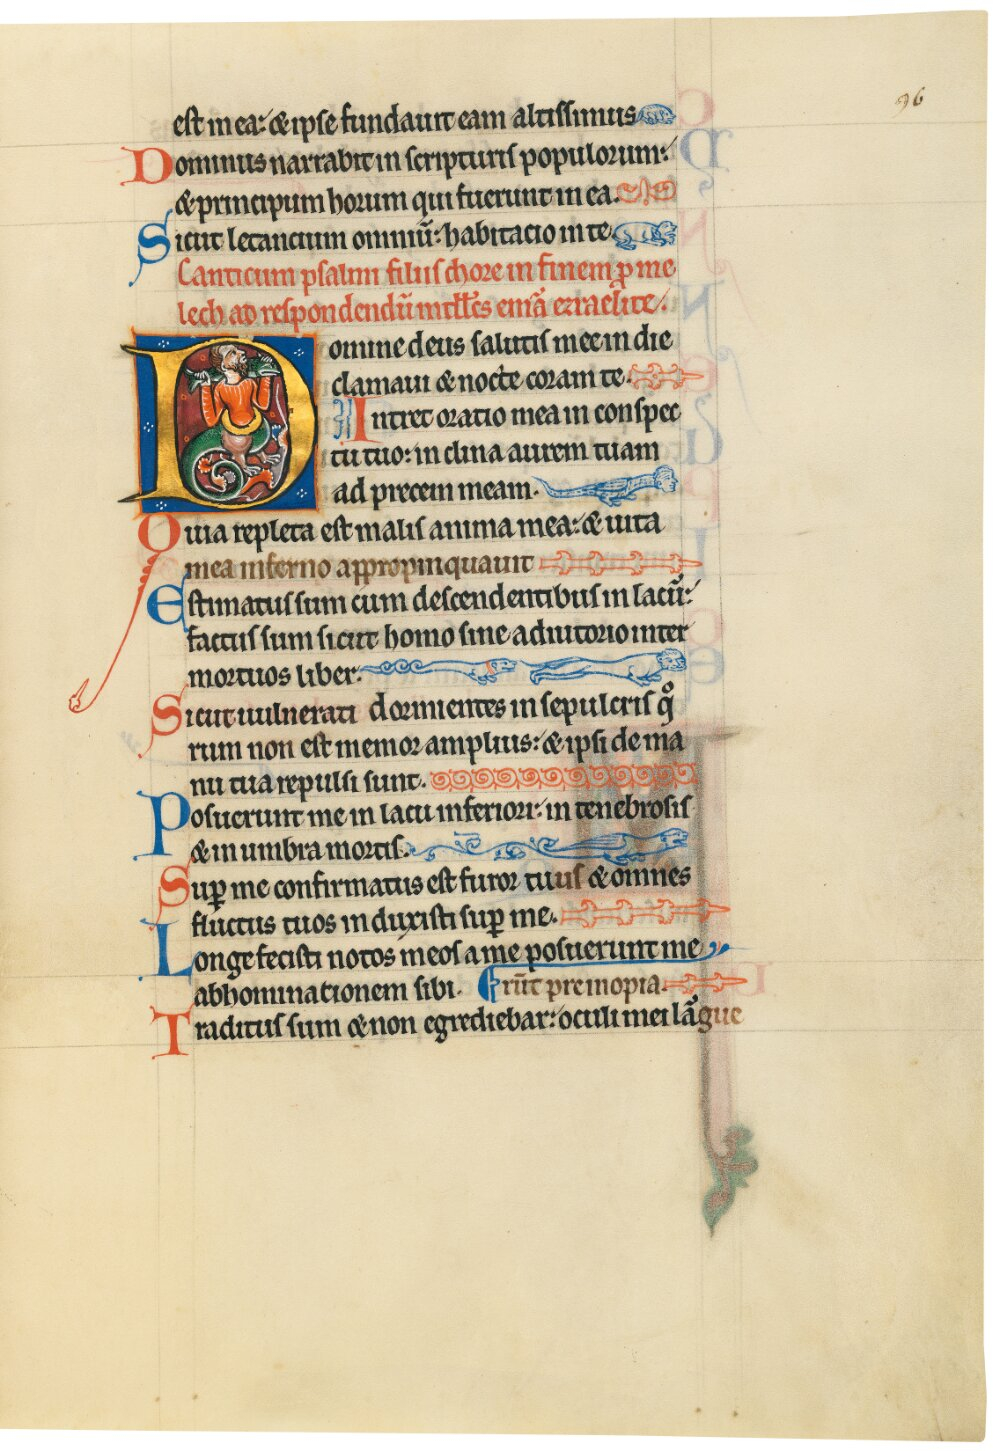 96
est in ea: & ipse fundauit eam altissimus
Dominus narrabit in scripturis populorum:
& principum horum qui fuerunt in ea.
Sicut letancium omniū: habitacio in te
Canticum psalmi filiis chore in finem ꝓ me
lech ad respondendū
Domine deus salutis mee in die
clamaui & nocte coram te.
Intret oratio mea in conspec
tu tuo: inclina aurem tuam
ad precem meam.
Quia repleta est malis anima mea: & uita
mea inferno appropinquauit
Estimatus sum cum descendentibus in lacū:
factus sum sicut homo sine adiutorio inter
mortuos liber.
Sicut uulnerati dormientes in sepulcris qͦ
rum non est memor amplius: & ipsi de ma
nu tua repulsi sunt.
Posuerunt me in lacu inferiori: in tenebrosis
& in umbra mortis.
Suꝑ me confirmatus est furor tuus & omnes
fluctus tuos induxisti suꝑ me.
Longe fecisti notos meos a me posuerunt me
abhominationem sibi. runt pre inopia.
Traditus sum & non egrediebar: oculi mei lāgue